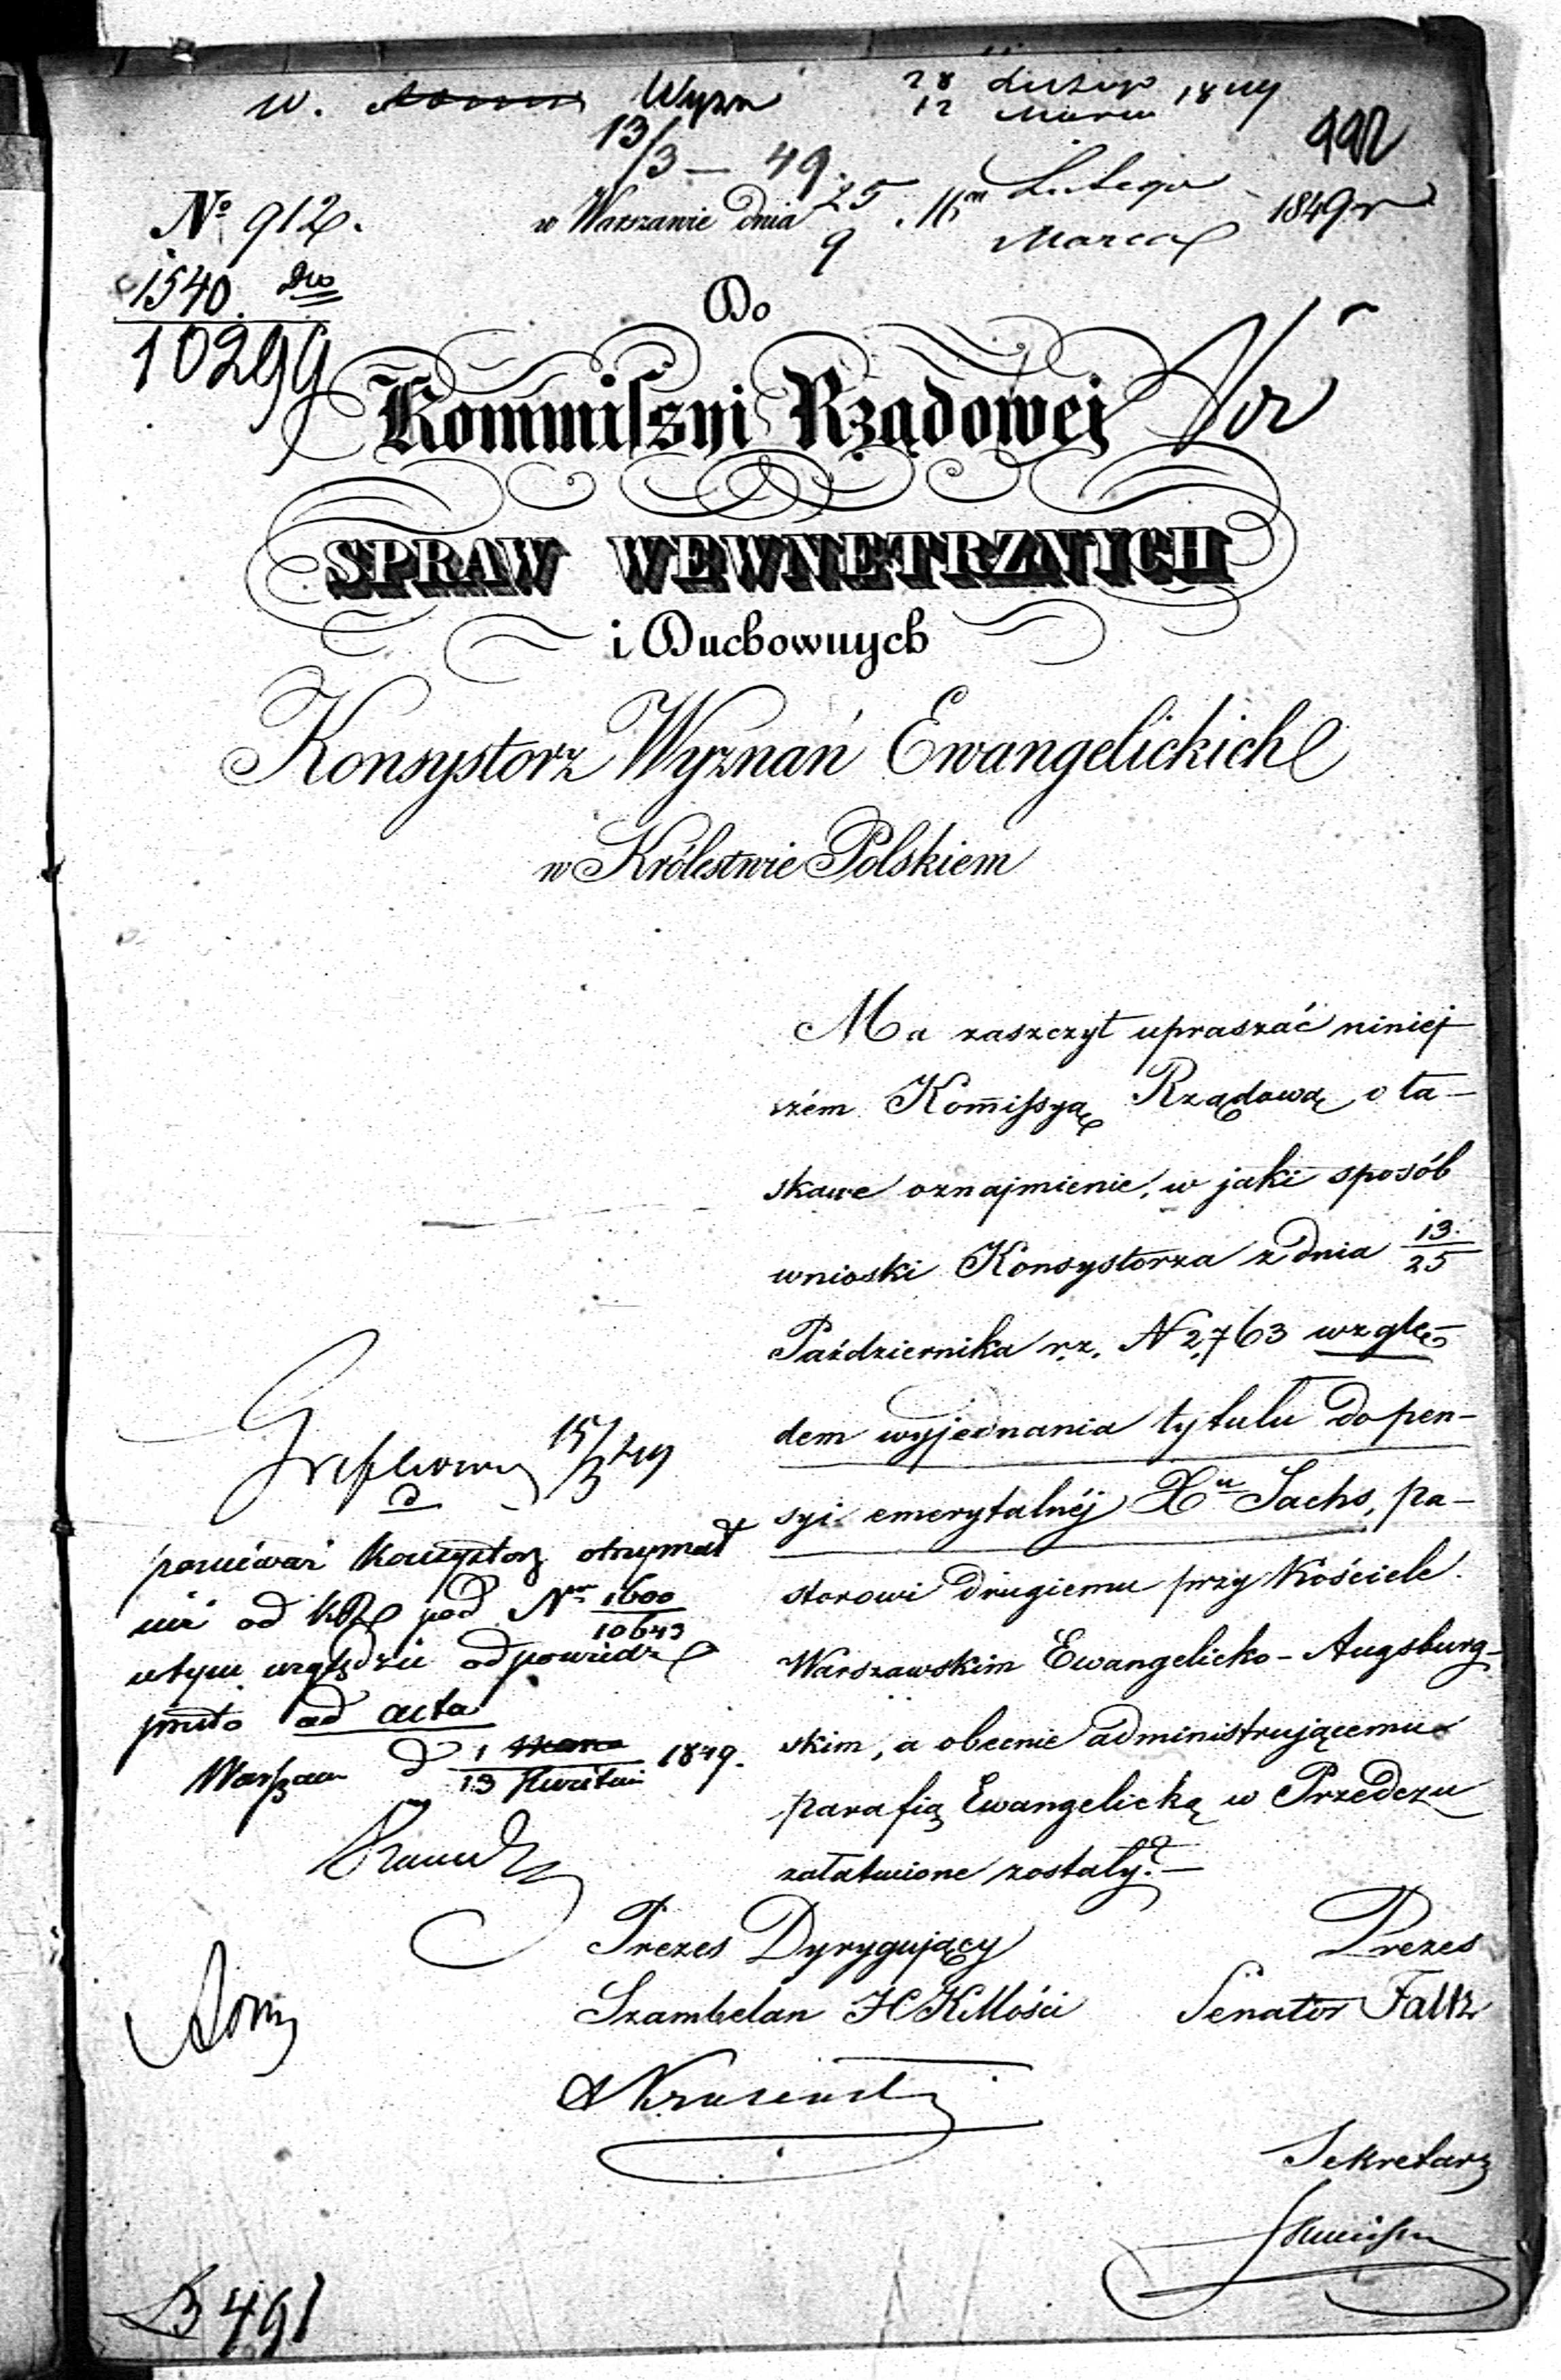 W. Wyzn 28 Lutego 1849
12 Marca
13/3 – 49.
492
No 912.
w Warszawie dnia 25 Lutego 1849 r
9 Marca
1540
10299
Do
Kommissyi Rządowej
SPRAW WEWNETRZNYCH
i Duchownych
Konsystorz Wyznań Ewangelickich
w Królestwie Polskiem
Ma zaszczyt upraszać niniej
szém Kom̄issyą Rządową o ła-
skawe oznajmienie, w jaki sposób
wnioski Konsystorza z dnia 13/25
Października r.z. N 2,763 wzglę-
dem wyjednania tytułu do pen-
syi emerytalnéj Xu Sachs, pa-
storowi drugiemu przy Kościele
Warszawskim Ewangelicko-Augsburg-
skim, a obecnie administrującemu
parafią Ewangelicką w Przedczu
załatwione zostały?—
15/3 49
ponieważ Konsystorz otrzymał
już od KR pod Nr 1600/10643
w tym względzie odpowiedź
przeto ad acta
Warszawa d 1/13 Kwietnia 1849.
Prezes Dyrygujący
Szambelan JCKMości
Prezes
Senator Faltz
Sekretarz
B 491